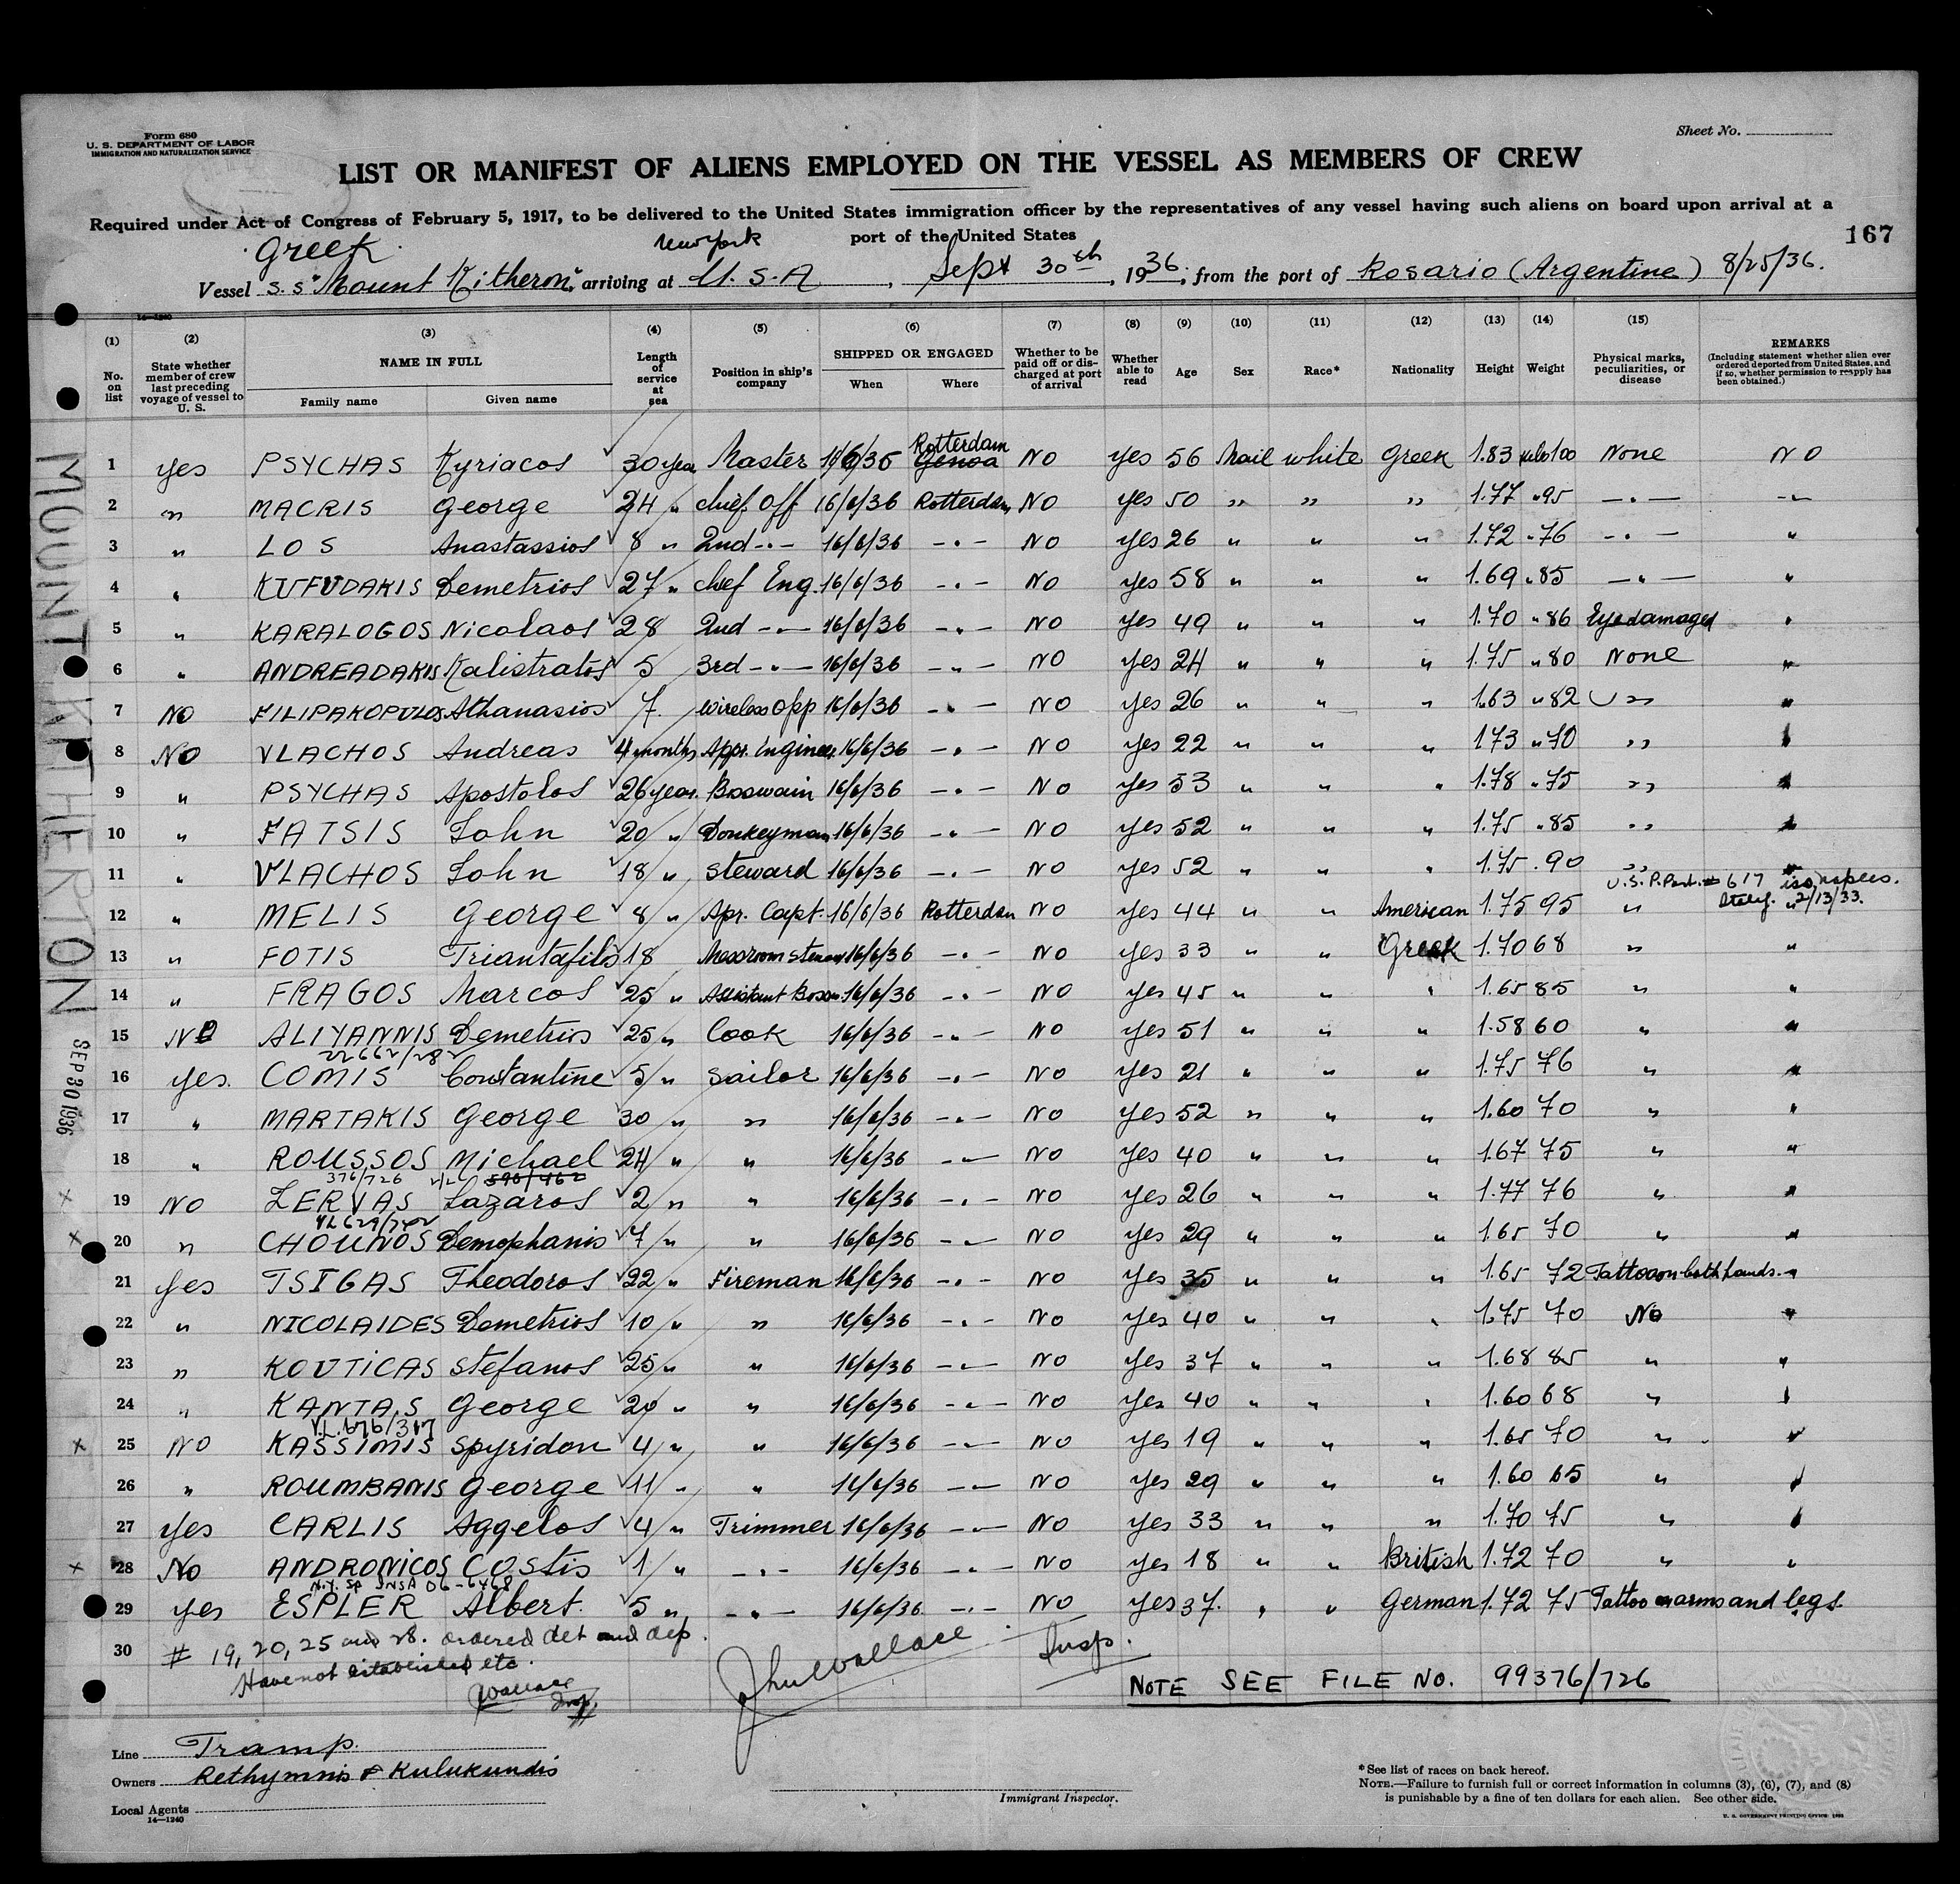 Form 680
U. S. DEPARTMENT OF LABOR
IMMIGRATION AND NATURALIZATION SERVICE
Sheet No.
LIST OR MANIFEST OF ALIENS EMPLOYED ON THE VESSEL AS MEMBERS OF CREW
Required under Act of Congress of February 5, 1917, to be delivered to the United States immigration officer by the representatives of any vessel having such aliens on board upon arrival at a
port of the United States
167
Greek
New York
Vessel S.S "Mount Kitheron", arriving at U.S.A, Sept 30th, 1936, from the port of Rosario (Argentine) 8/25/36.
14-1240
(1) (2) (3) (4) (5) (6) (7) (8) (9) (10) (11) (12) (13) (14) (15)
No. on list
State whether member of crew last preceding voyage of vessel to U. S.
NAME IN FULL
Family name
Given name
Length of service at sea
Position in ship's company
SHIPPED OR ENGAGED
When
Where
Whether to be paid off or discharged at port of arrival
Whether able to read
Age
Sex
Race*
Nationality
Height
Weight
Physical marks, peculiarities, or disease
REMARKS
(Including statement whether alien ever ordered deported from United States, and if so, whether permission to reapply has been obtained.)
MOUNT KITHERTON SEP 30 1936
Rotterdam
1 yes PSYCHAS Kyriacos 30 year Master 16/6/36 Genoa NO yes 56 Mail white Greek 1.83 kilo100 None NO
2 " MACRIS George 24 " chief Off 16/6/36 Rotterdam NO yes 50 " " " 1.77 " 95 -"- -"-
3 " LOS Anastassios 8 " 2nd -"- 16/6/36 -"- NO yes 26 " " " 1.72 " 76 -"- "
4 " KUFUDAKIS Demetrios 27 " chef Eng. 16/6/36 -"- NO yes 58 " " " 1.69 " 85 -"- "
5 " KARALOGOS Nicolaos 28 2nd -"- 16/6/36 -"- NO yes 49 " " " 1.70 " 86 Eye damaged "
6 " ANDREADAKIS Kalistratos 5 3rd -"- 16/6/36 -"- NO yes 24 " " " 1.75 " 80 None "
7 NO FILIPAKOPULOS Athanasios 7 wireless Opp 16/6/36 -"- NO yes 26 " " " 1.63 " 82 " "
8 NO VLACHOS Andreas 4 months Appr. Engineer 16/6/36 -"- NO yes 22 " " " 173 " 70 " "
9 " PSYCHAS Apostolos 26 year. Boswain 16/6/36 -"- NO yes 53 " " " 1.78 " 75 " "
10 " FATSIS John 20 " Donkeyman 16/6/36 -"- NO yes 52 " " " 1.75 " 85 " "
11 " VLACHOS John 18 " Steward 16/6/36 -"- NO yes 52 " " " 1.75 " 90 " "
U.S. P.Port. # 617 iss. naples.
Italy. 2/13/33.
12 " MELIS George 8 " Apr. Capt. 16/6/36 Rotterdam NO yes 44 " " American 1.75 95 " "
13 " FOTIS Triantafilo 18 Messroom Steward 16/6/36 -"- NO yes 33 " " Greek 1.70 68 " "
14 " FRAGOS Marcos 25 " Assistant Bosn 16/6/36 -"- NO yes 45 " " " 1.65 85 " "
15 NO ALIYANNIS Demetrios 25 " Cook 16/6/36 -"- NO yes 51 " " " 1.58 60 " "
16 yes. COMIS Constantine 5 " Sailor 16/6/36 -"- NO yes 21 " " " 1.75 76 " "
17 " MARTAKIS George 30 " " 16/6/36 -"- NO yes 52 " " " 1.60 70 " "
18 " ROUSSOS Michael 24 " " 16/6/36 -"- NO yes 40 " " " 1.67 75 " "
376/726
x 19 NO ZERVAS Lazaros 2 " " 16/6/36 -"- NO yes 26 " " " 1.77 76 " "
x 20 " CHOUNOS Demophanis 7 " " 16/6/36 -"- NO yes 29 " " " 1.65 70 " "
21 yes TSIGAS Theodoros 22 " Fireman 16/6/36 -"- NO yes 35 " " " 1.65 72 Tattoo on both hands. "
22 " NICOLAIDES Demetrios 10 " " 16/6/36 -"- NO yes 40 " " " 1.75 70 No "
23 " KOUTICAS Stefanos 25 " " 16/6/36 -"- NO yes 37 " " " 1.68 85 " "
24 " KANTAS George 20 " " 16/6/36 -"- NO yes 40 " " " 1.60 68 " "
V.L. 676/317
x 25 NO KASSIMIS Spyridon 4 " " 16/6/36 -"- NO yes 19 " " " 1.65 70 " "
26 " ROUMBANIS George 11 " " 16/6/36 -"- NO yes 29 " " " 1.60 65 " "
27 yes CARLIS Aggelos 4 " Trimmer 16/6/36 -"- NO yes 33 " " " 1.70 75 " "
x 28 No ANDRONICOS Costis 1 " -"- 16/6/36 -"- NO yes 18 " " British 1.72 70 " "
29 yes ESPLER Albert 5 " -"- 16/6/36 -"- NO yes 37. " " German 1.72 75 Tattoo on arms and legs.
30 # 19, 20, 25 and 28. ordered det and dep.
Have not established etc.
Wallace Insp.
John Wallace Insp.
NOTE SEE FILE NO. 99376/726
Line Tramp.
Owners Rethymnis & Kulukundis
Local Agents
14-1240
Immigrant Inspector.
* See list of races on back hereof.
NOTE.—Failure to furnish full or correct information in columns (3), (6), (7), and (8)
is punishable by a fine of ten dollars for each alien. See other side.
U. S. GOVERNMENT PRINTING OFFICE